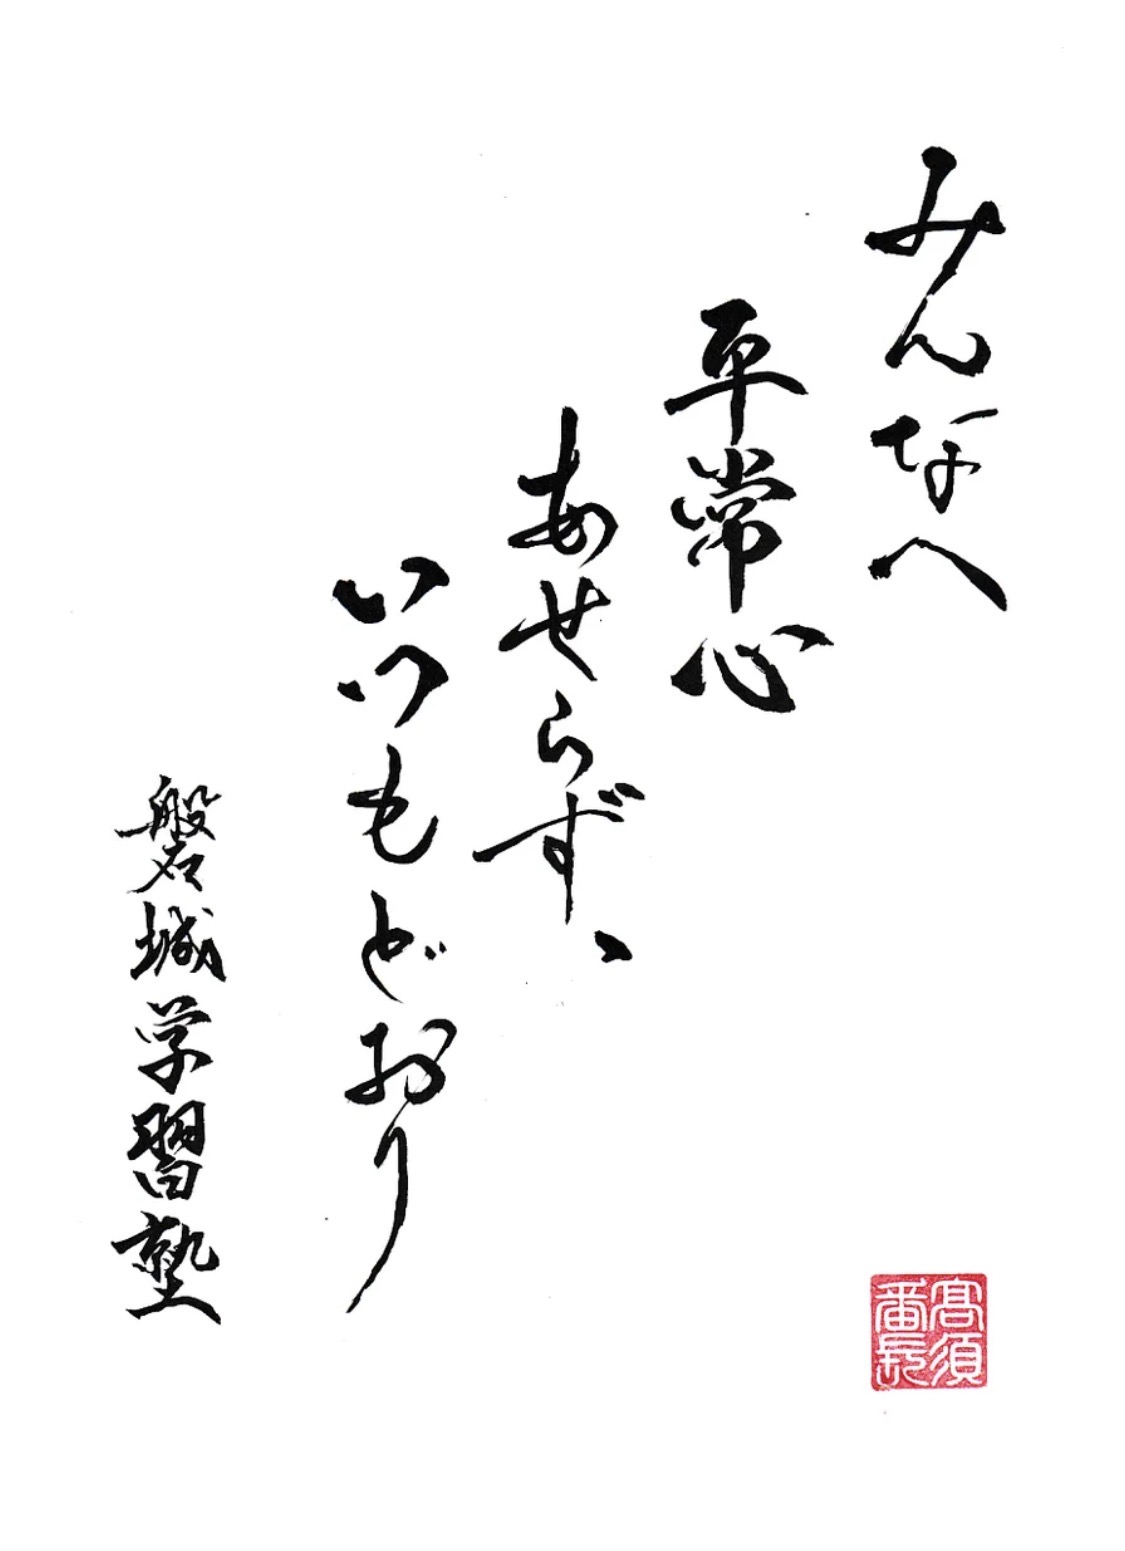 みんなへ
平常心
あせらず、
いつもどおり
磐城学習塾
髙須
番長